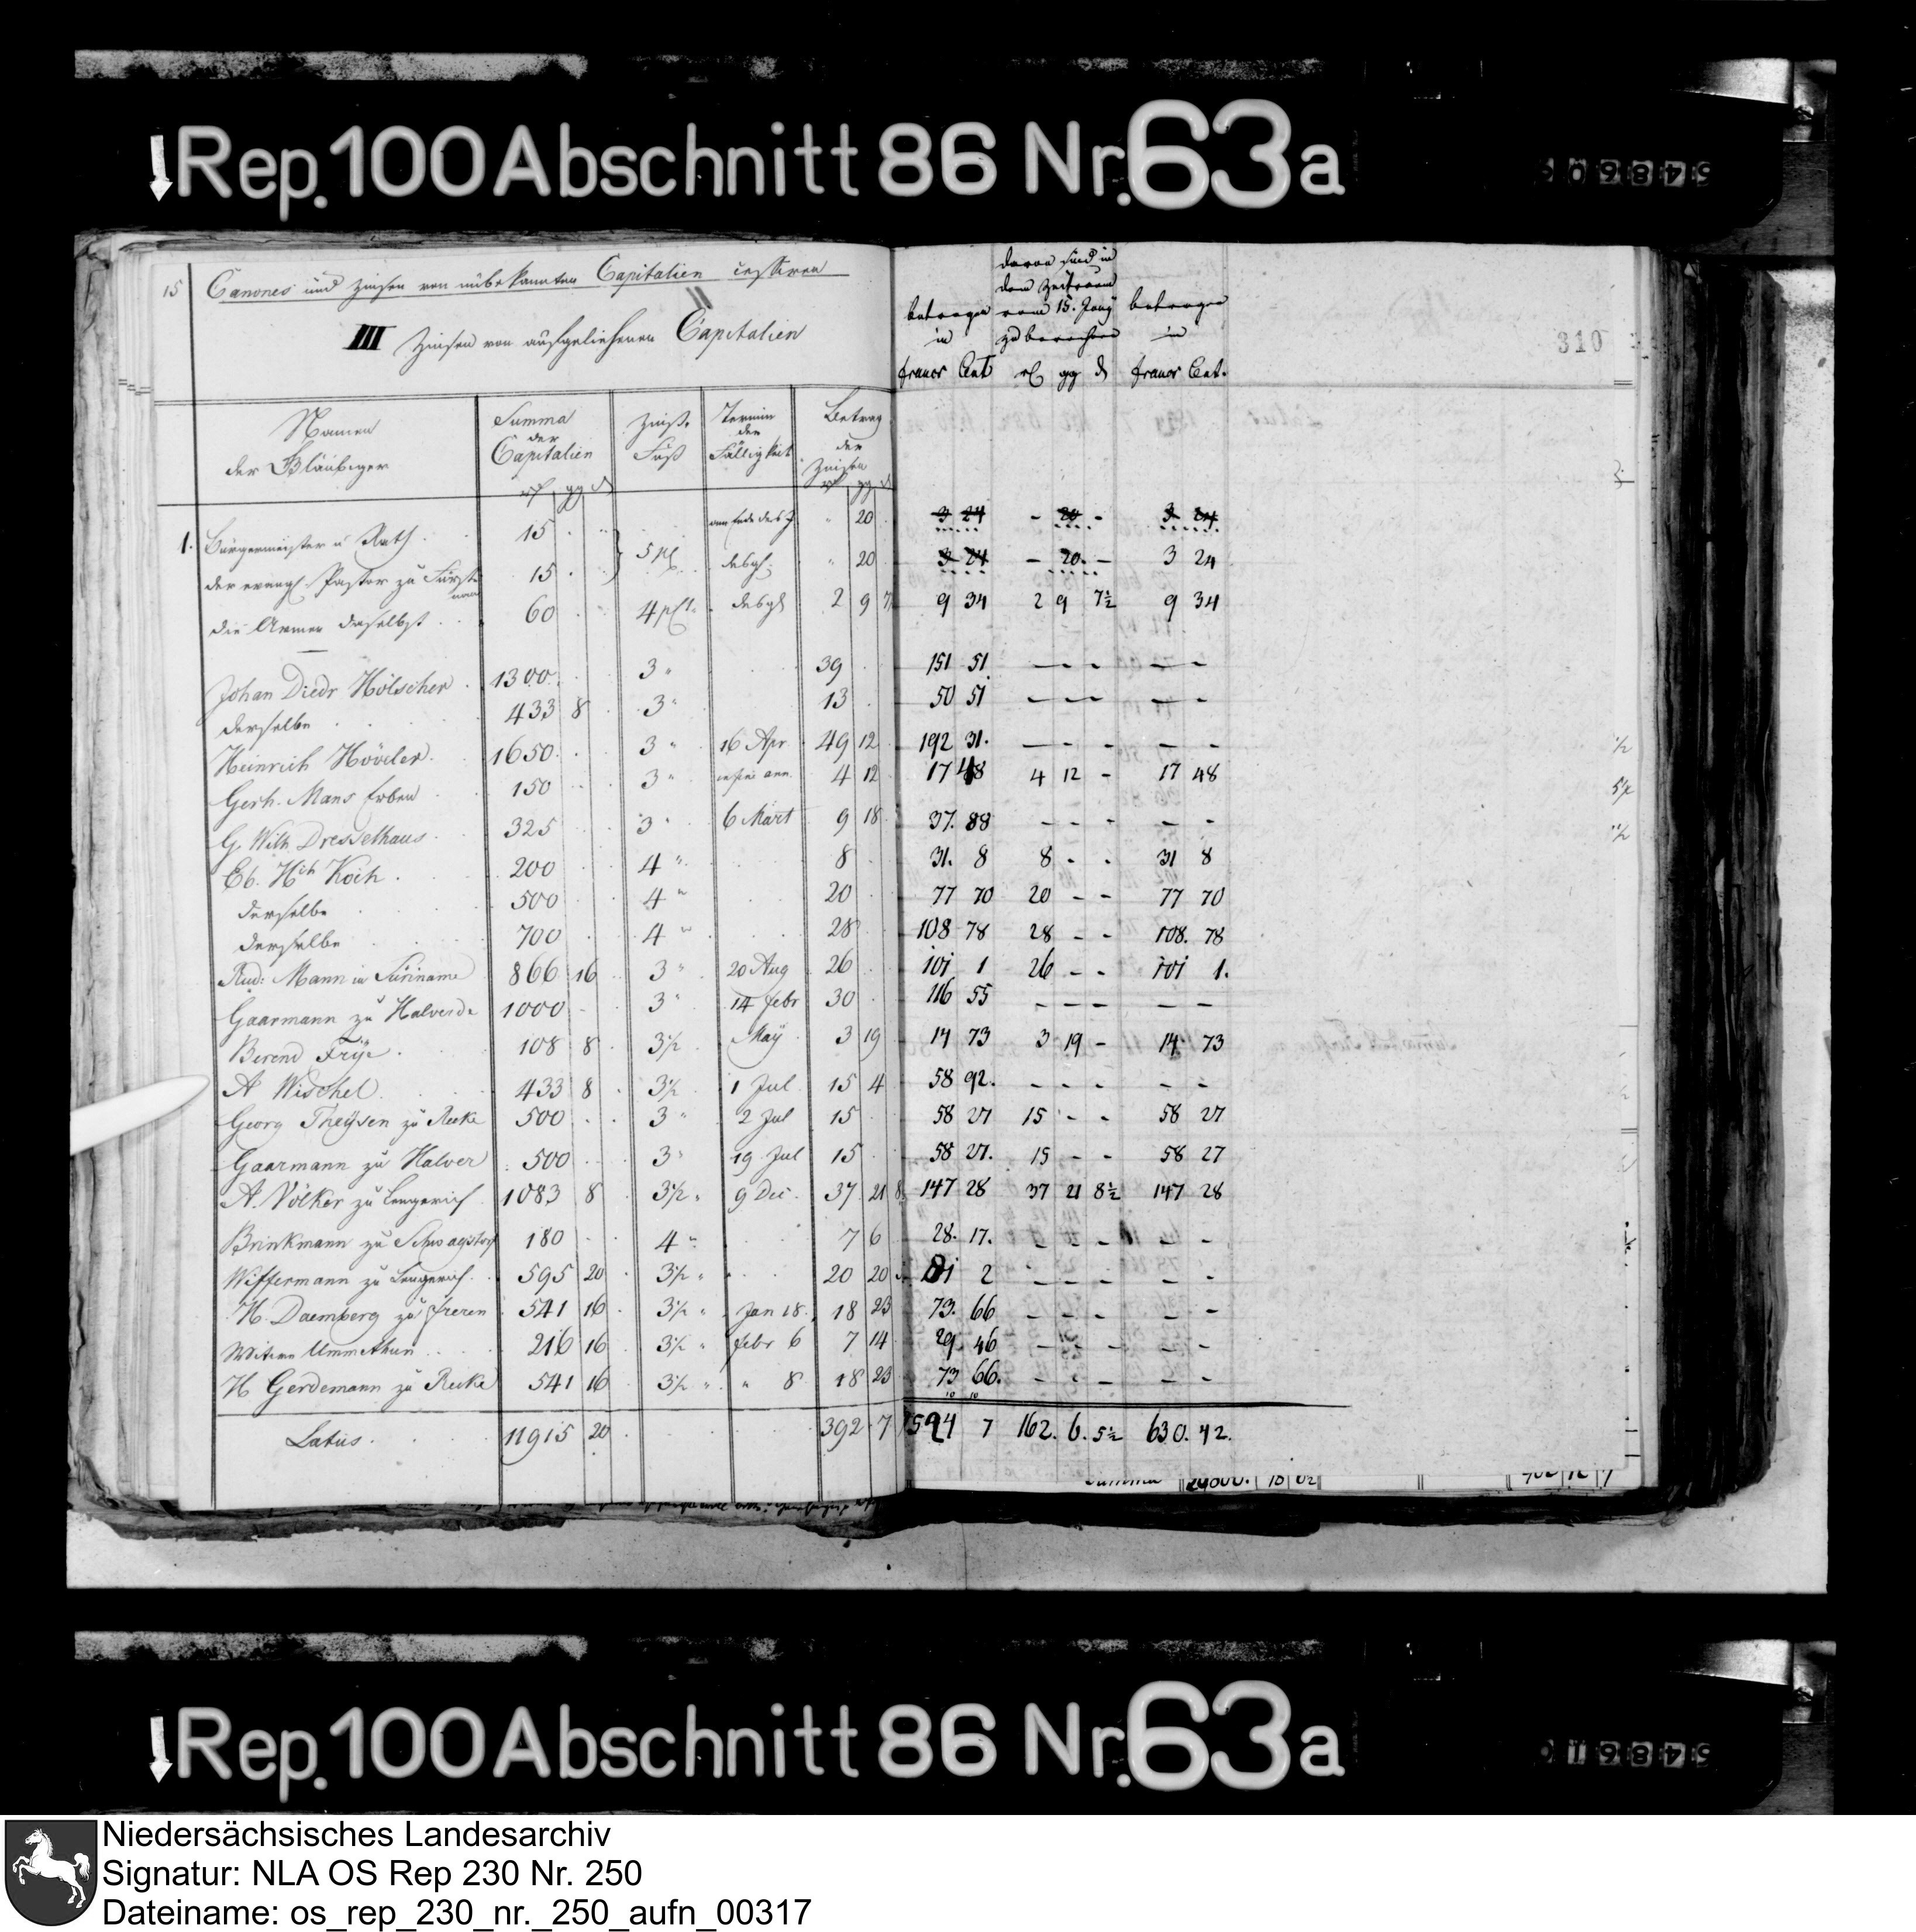 Rep. 100 Abschnitt 86 Nr. 63a
15 Canones und Zinsen von unbekannten Capitalien cessiren
III Zinsen von ausgeliehenen Capitalien
310
Namen der Gläubiger Summa der Capitalien Zins-Fuß Termin der Fälligkeit Betrag der Zinsen betragen in francs Cent davon sind in dem Zeitraum vom 15. Juny zu berechnen gg d betragen in francs Cent.
1. Bürgermeister u Rath 15 am Ende des J 20 3 24 - 20 - 3 24
der evangl. Pastor zu Fürstenau 15 5 pC desgl. 20 3 24 - 20. - 3 24
die Armen daselbst 60 4 pCt. desgl 2 9 7 9 34 2 9 7½ 9 34
Johan Diedr Hölscher 1300 3 " 39 151 51 - - - - -
derselbe 433 8 3 " 13 50 51 - - - - -
Heinrich Höveler 1650 3 " 16 Apr 49 12 192 31. - - - - -
Gerh. Mans Erben 150 3 " 4 12 17 48 4 12 - 17 48
G. Wilh Dresselhaus 325 3 " 6 Märt 9 18 37. 88 - - - - -
Eb. Hch Koch 200 4 " 8 31. 8 8 - - 31 8
derselbe 500 4 " 20 77 70 20 - - 77 70
derselbe 700 4 " 28 108 78 28 - - 108. 78
Rud: Mann in Suriname 866 16 3 " 20 Aug 26 101 1 26 - - 101 1.
Gaarmann zu Halverde 1000 3 " 14 febr 30 116 55 - - - - -
Berend Frije 108 8 3½ May 3 19 14 73 3 19 - 14 73
A Wischel 433 8 3½ 1 Jul 15 4 58 92. - - - - -
Georg Theysen zu Recke 500 3 " 2 Jul 15 58 27 15 - - 58 27
Gaarmann zu Halver 500 3 " 19 Jul 15 58 27. 15 - - 58 27
A. Völker zu Lengerich 1083 8 3½ " 9 Dec. 37 21 8 147 28 37 21 8½ 147 28
Brinkmann zu Schwagstorf 180 4 " 7 6 28. 17. - - - - -
Wiffermann zu Lengerich 595 20 3½ " 20 20 81 2 - - - - -
H. Daemberg zu Freren 541 16 3½ " Jan 18. 18 23 73. 66 - - - - -
Witwe Ummethun 216 16 3½ " febr 6 7 14 29. 46 - - - - -
H Gerdemann zu Recke 541 16 3½ " " 8 18 23 73 66. - - - - -
Latus 11915 20 392 7 1524 7 162. 6. 5½ 630. 42.
Rep. 100 Abschnitt 86 Nr. 63a
Niedersächsisches Landesarchiv
Signatur: NLA OS Rep 230 Nr. 250
Dateiname: os_rep_230_nr._250_aufn_00317